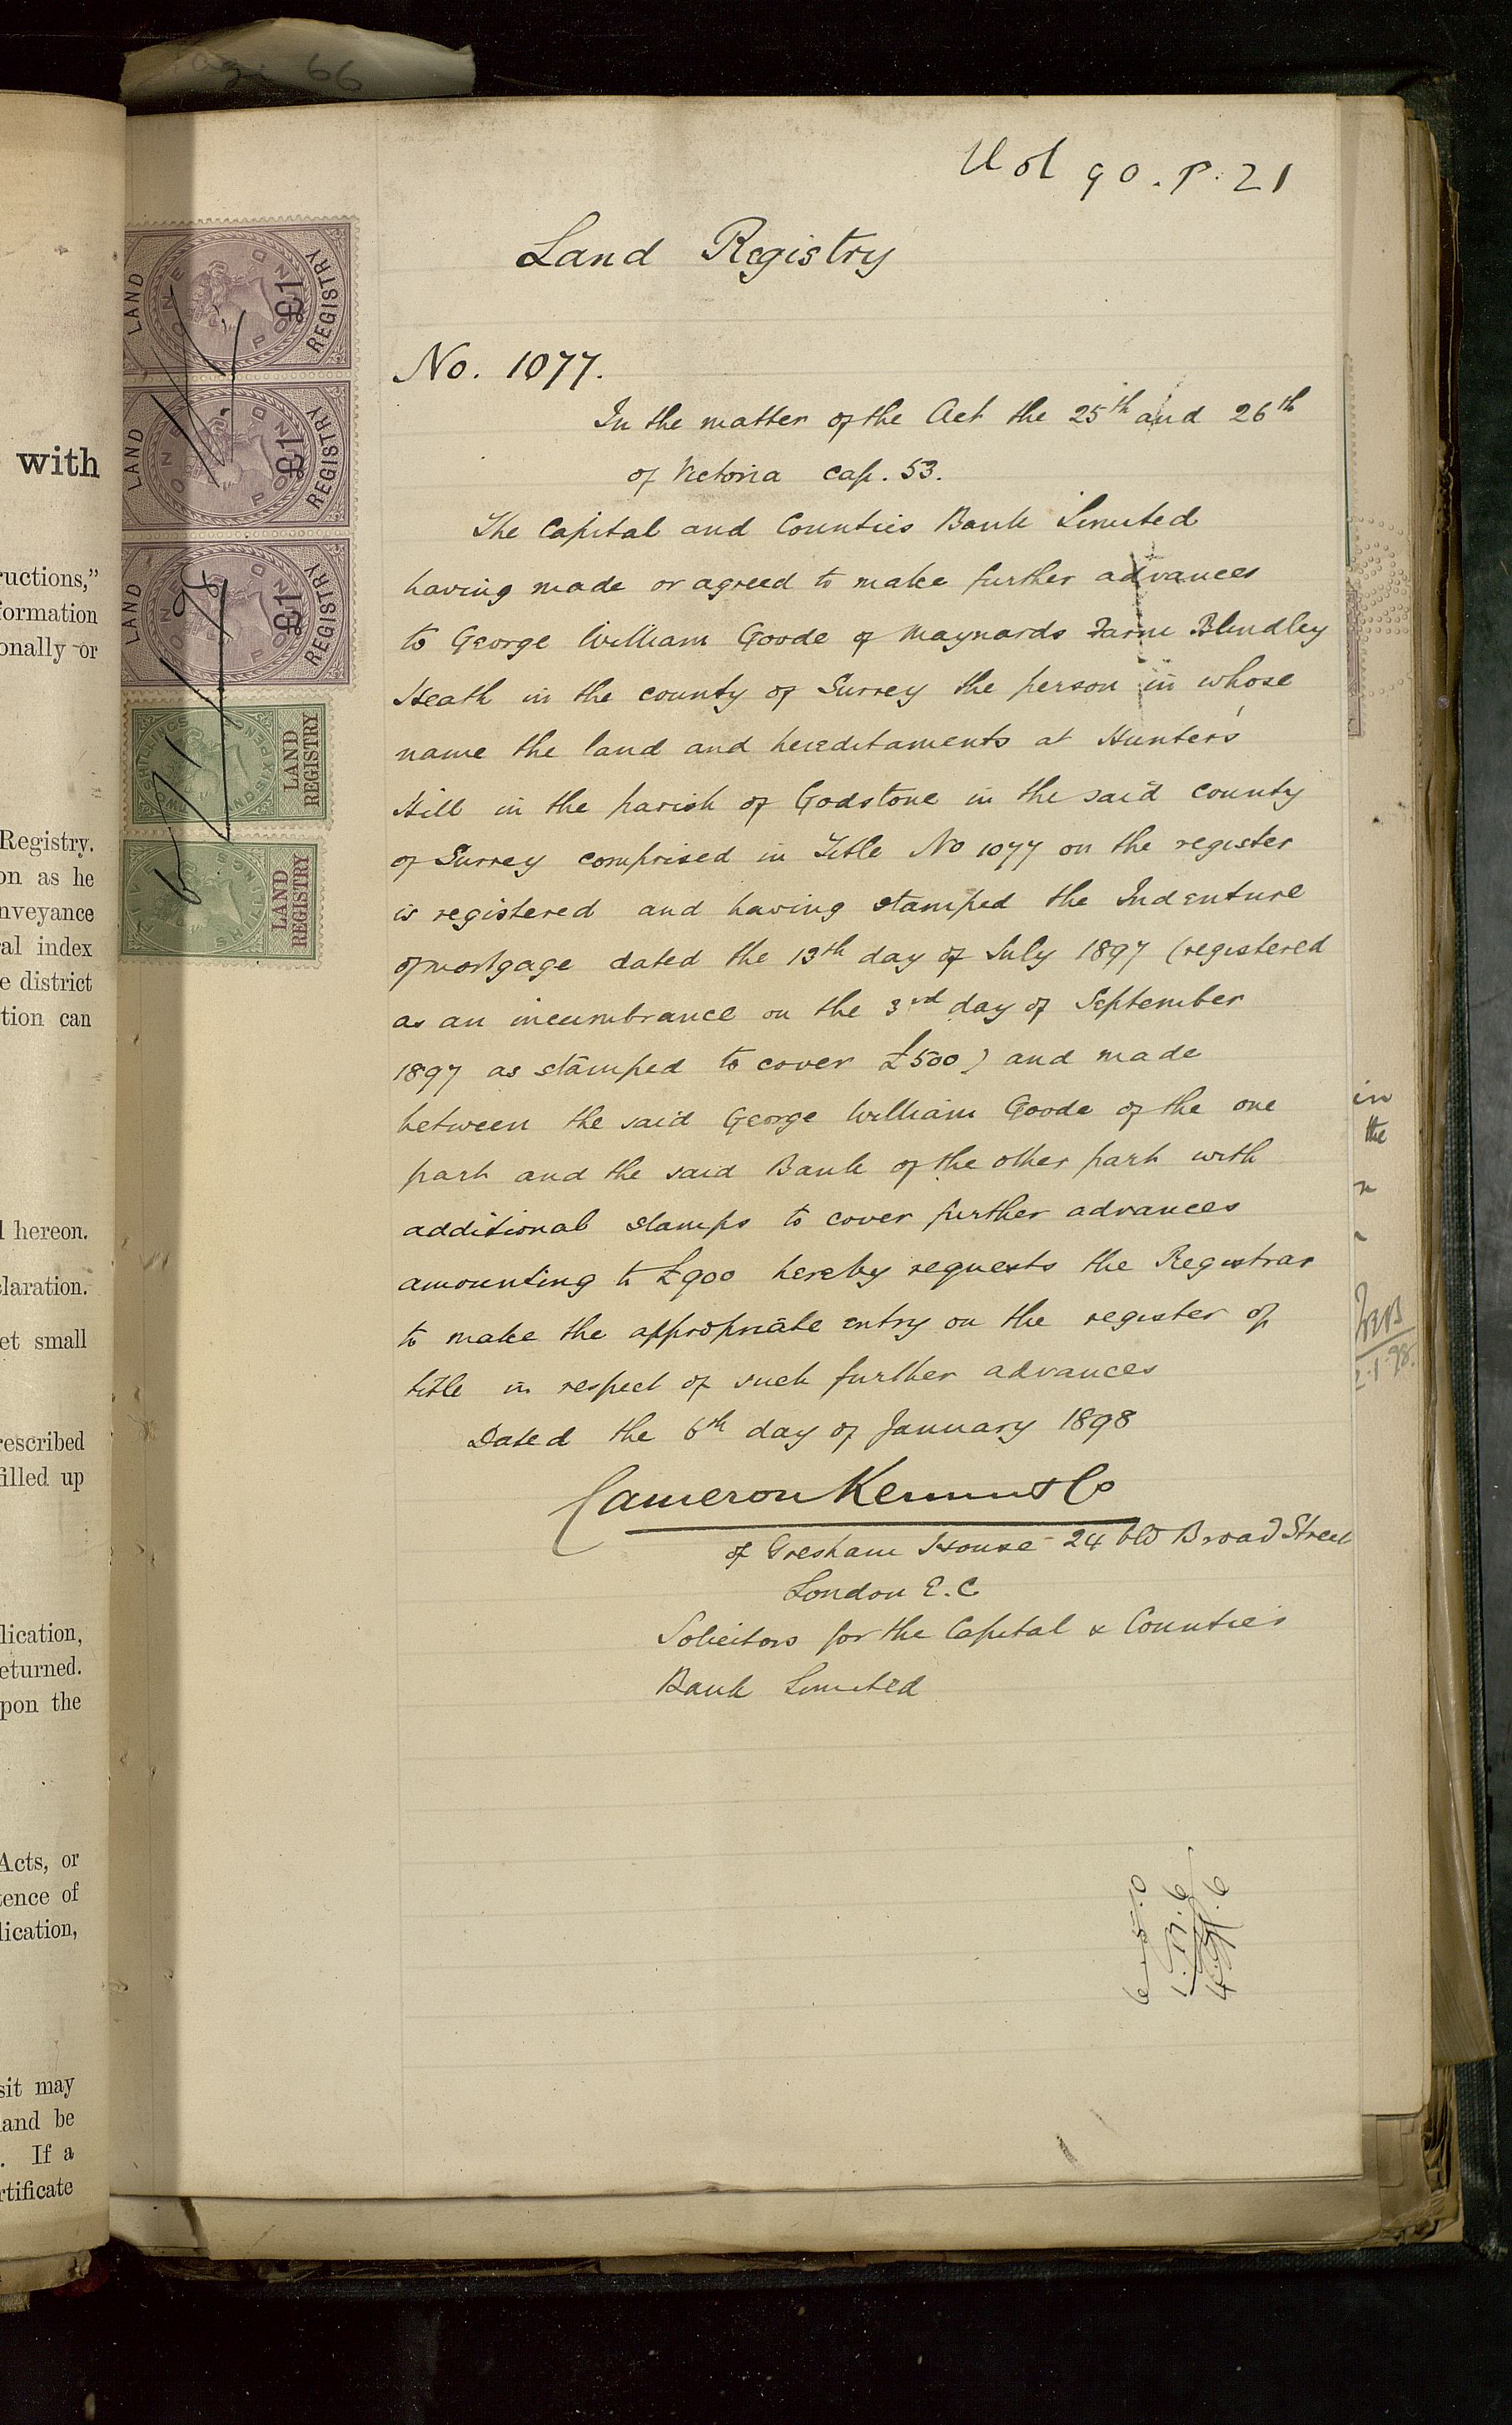 66
Vol 90. P. 21
Land Registry
No. 1077.
In the matter of the Act the 25th and 26th
of Victoria cap. 53.
The Capital and Counties Bank Limited
having made or agreed to make further advances
to George William Goode of Maynards Farm Blindley
Heath in the county of Surrey the person in whose
name the land and hereditaments at Hunter's
Hill in the parish of Godstone in the said county
of Surrey comprised in Title No 1077 on the register
is registered and having stamped the Indenture
of mortgage dated the 13th day of July 1897 (registered
as an incumbrance on the 3rd day of September
1897 as stamped to cover £500) and made
between the said George William Goode of the one
part and the said Bank of the other part with
additional stamps to cover further advances
amounting to £900 hereby requests the Registrar
to make the appropriate entry on the register of
title in respect of such further advances
Dated the 6th day of January 1898
Cameron Kemm & Co
of Gresham House 24 Old Broad Street
London E.C
Solicitors for the Capital & Counties
Bank Limited
LAND REGISTRY
ONE POUND
£1
LAND REGISTRY
ONE POUND
£1
LAND REGISTRY
ONE POUND
£1
LAND
REGISTRY
LAND
REGISTRY
6/1/98
with
ructions,"
formation
onally or
Registry.
on as he
nveyance
al index
e district
tion can
hereon.
laration.
et small
rescribed
filled up
lication,
eturned.
pon the
Acts, or
tence of
lication,
sit may
and be
. If a
rtificate
in
the